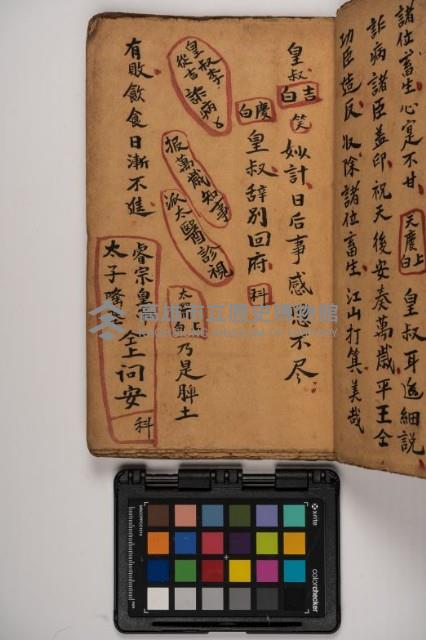 諸位畜生心寔不甘 天慶上白 皇叔耳边細說
詐病諸臣蓋印祝天後安奏萬歲平王仝
功臣造反収除諸位畜生江山打算美哉
皇叔
吉白 笑妙計日后事感恩不尽
慶白 皇叔辞別回府 科
皇叔李
從吉詐病
報萬歲知事
派太醫診視
太醫上白 乃是脾土
有敗飲食日漸不進
睿宗皇
太子 仝上问安 科
高雄市立歷史博物館
KAOHSIUNG MUSEUM OF HISTORY
x-rite
colorchecker